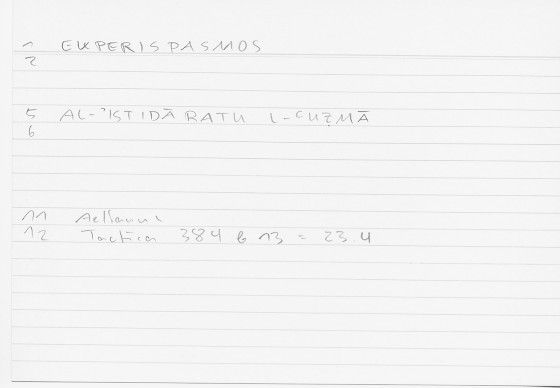 1 EKPERISPASMOS
2
5 AL-ʾISTIDĀRATU L-ʿUẒMĀ
6
11 Aelianus
12 Tactica 384 b 13 = 23.4